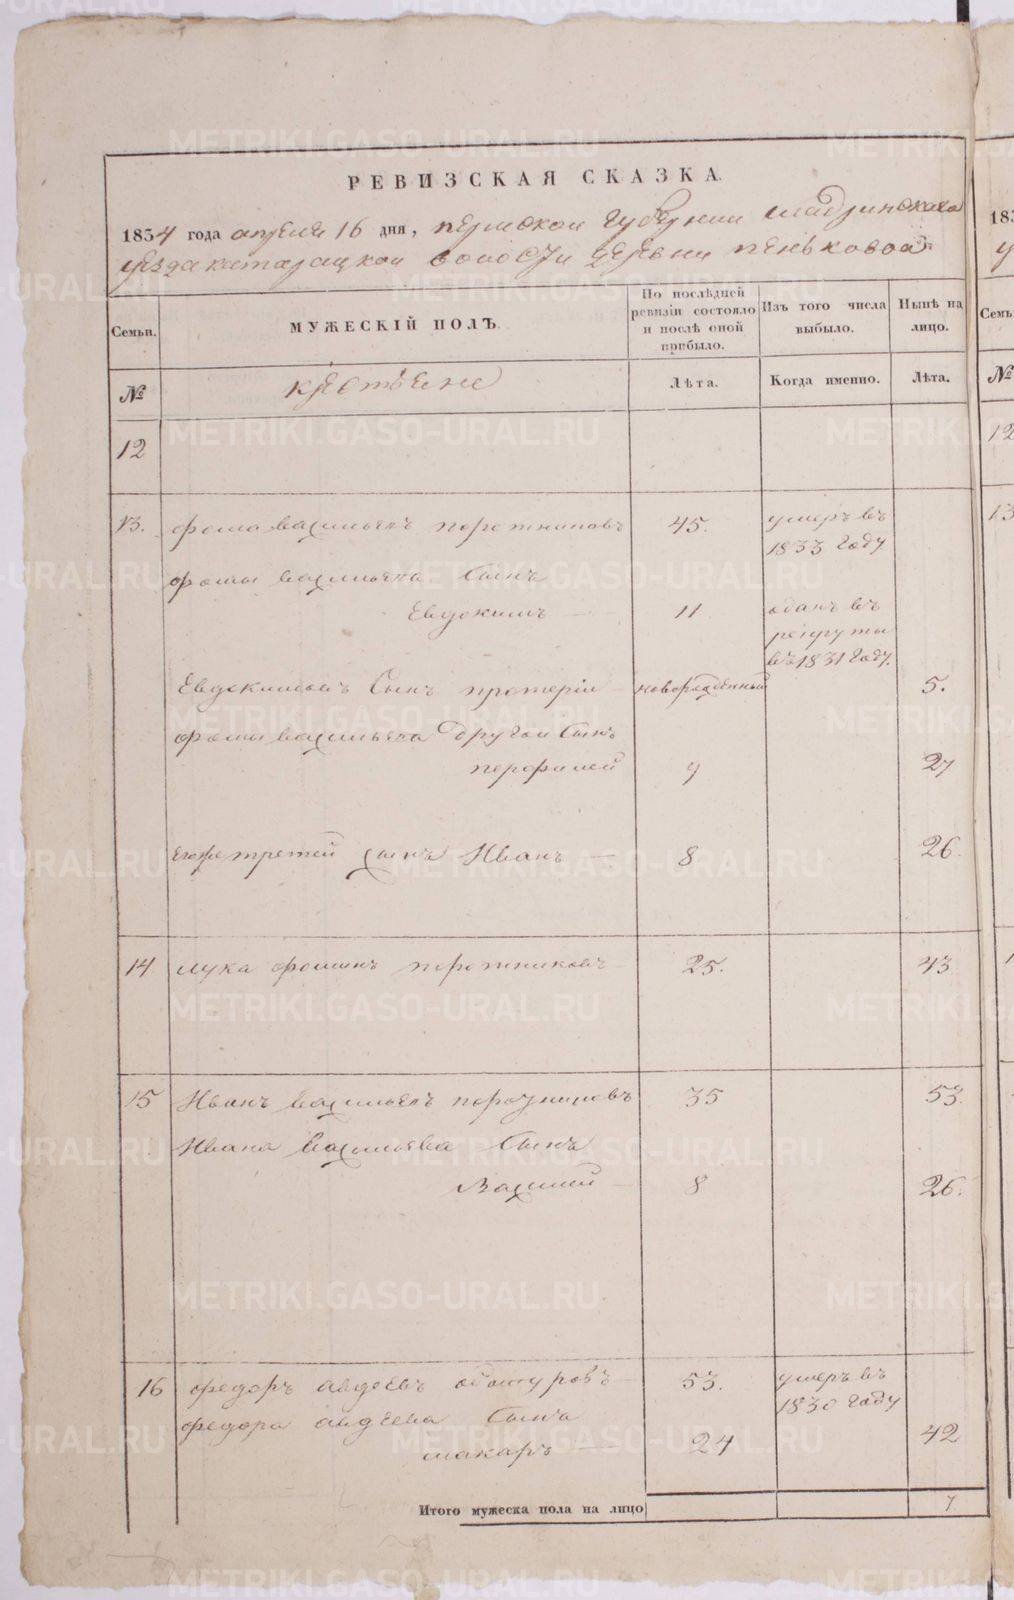 РЕВИЗСКАЯ СКАЗКА.
1834 года апреля 16 дня, пермской губернии шадринскаго
уезда катарацкой волости деревни пеньковой
Семьи.
МУЖЕСКІЙ ПОЛЪ.
По послѣдней ревизіи состояло и послѣ оной прибыло.
Изъ того числа выбыло.
Нынѣ на лицо.
№
крестьяне
Лѣта.
Когда именно.
Лѣта.
12
13. фома васильевъ поротниковъ 45. умеръ въ
1833 году
фомы васильева сынъ
Евдокимъ — 11 отданъ въ
рекруты
въ 1831 году.
Евдокимовъ Сынъ протерiи новорожденный 5.
фомы васильева другой сынъ
перфилей 9 27
егоже третей сынъ Иванъ — 8 26.
14 лука фоминъ поротниковъ 25. 43
15 Иванъ васильевъ поротниковъ 35 53.
Ивана васильева сынъ
Василей 8 26.
16 федоръ авдеевъ 53. умеръ въ
1830 году
федора авдеева сынъ
макаръ — 24 42
Итого мужеска пола на лицо 7
METRIKI.GASO-URAL.RU